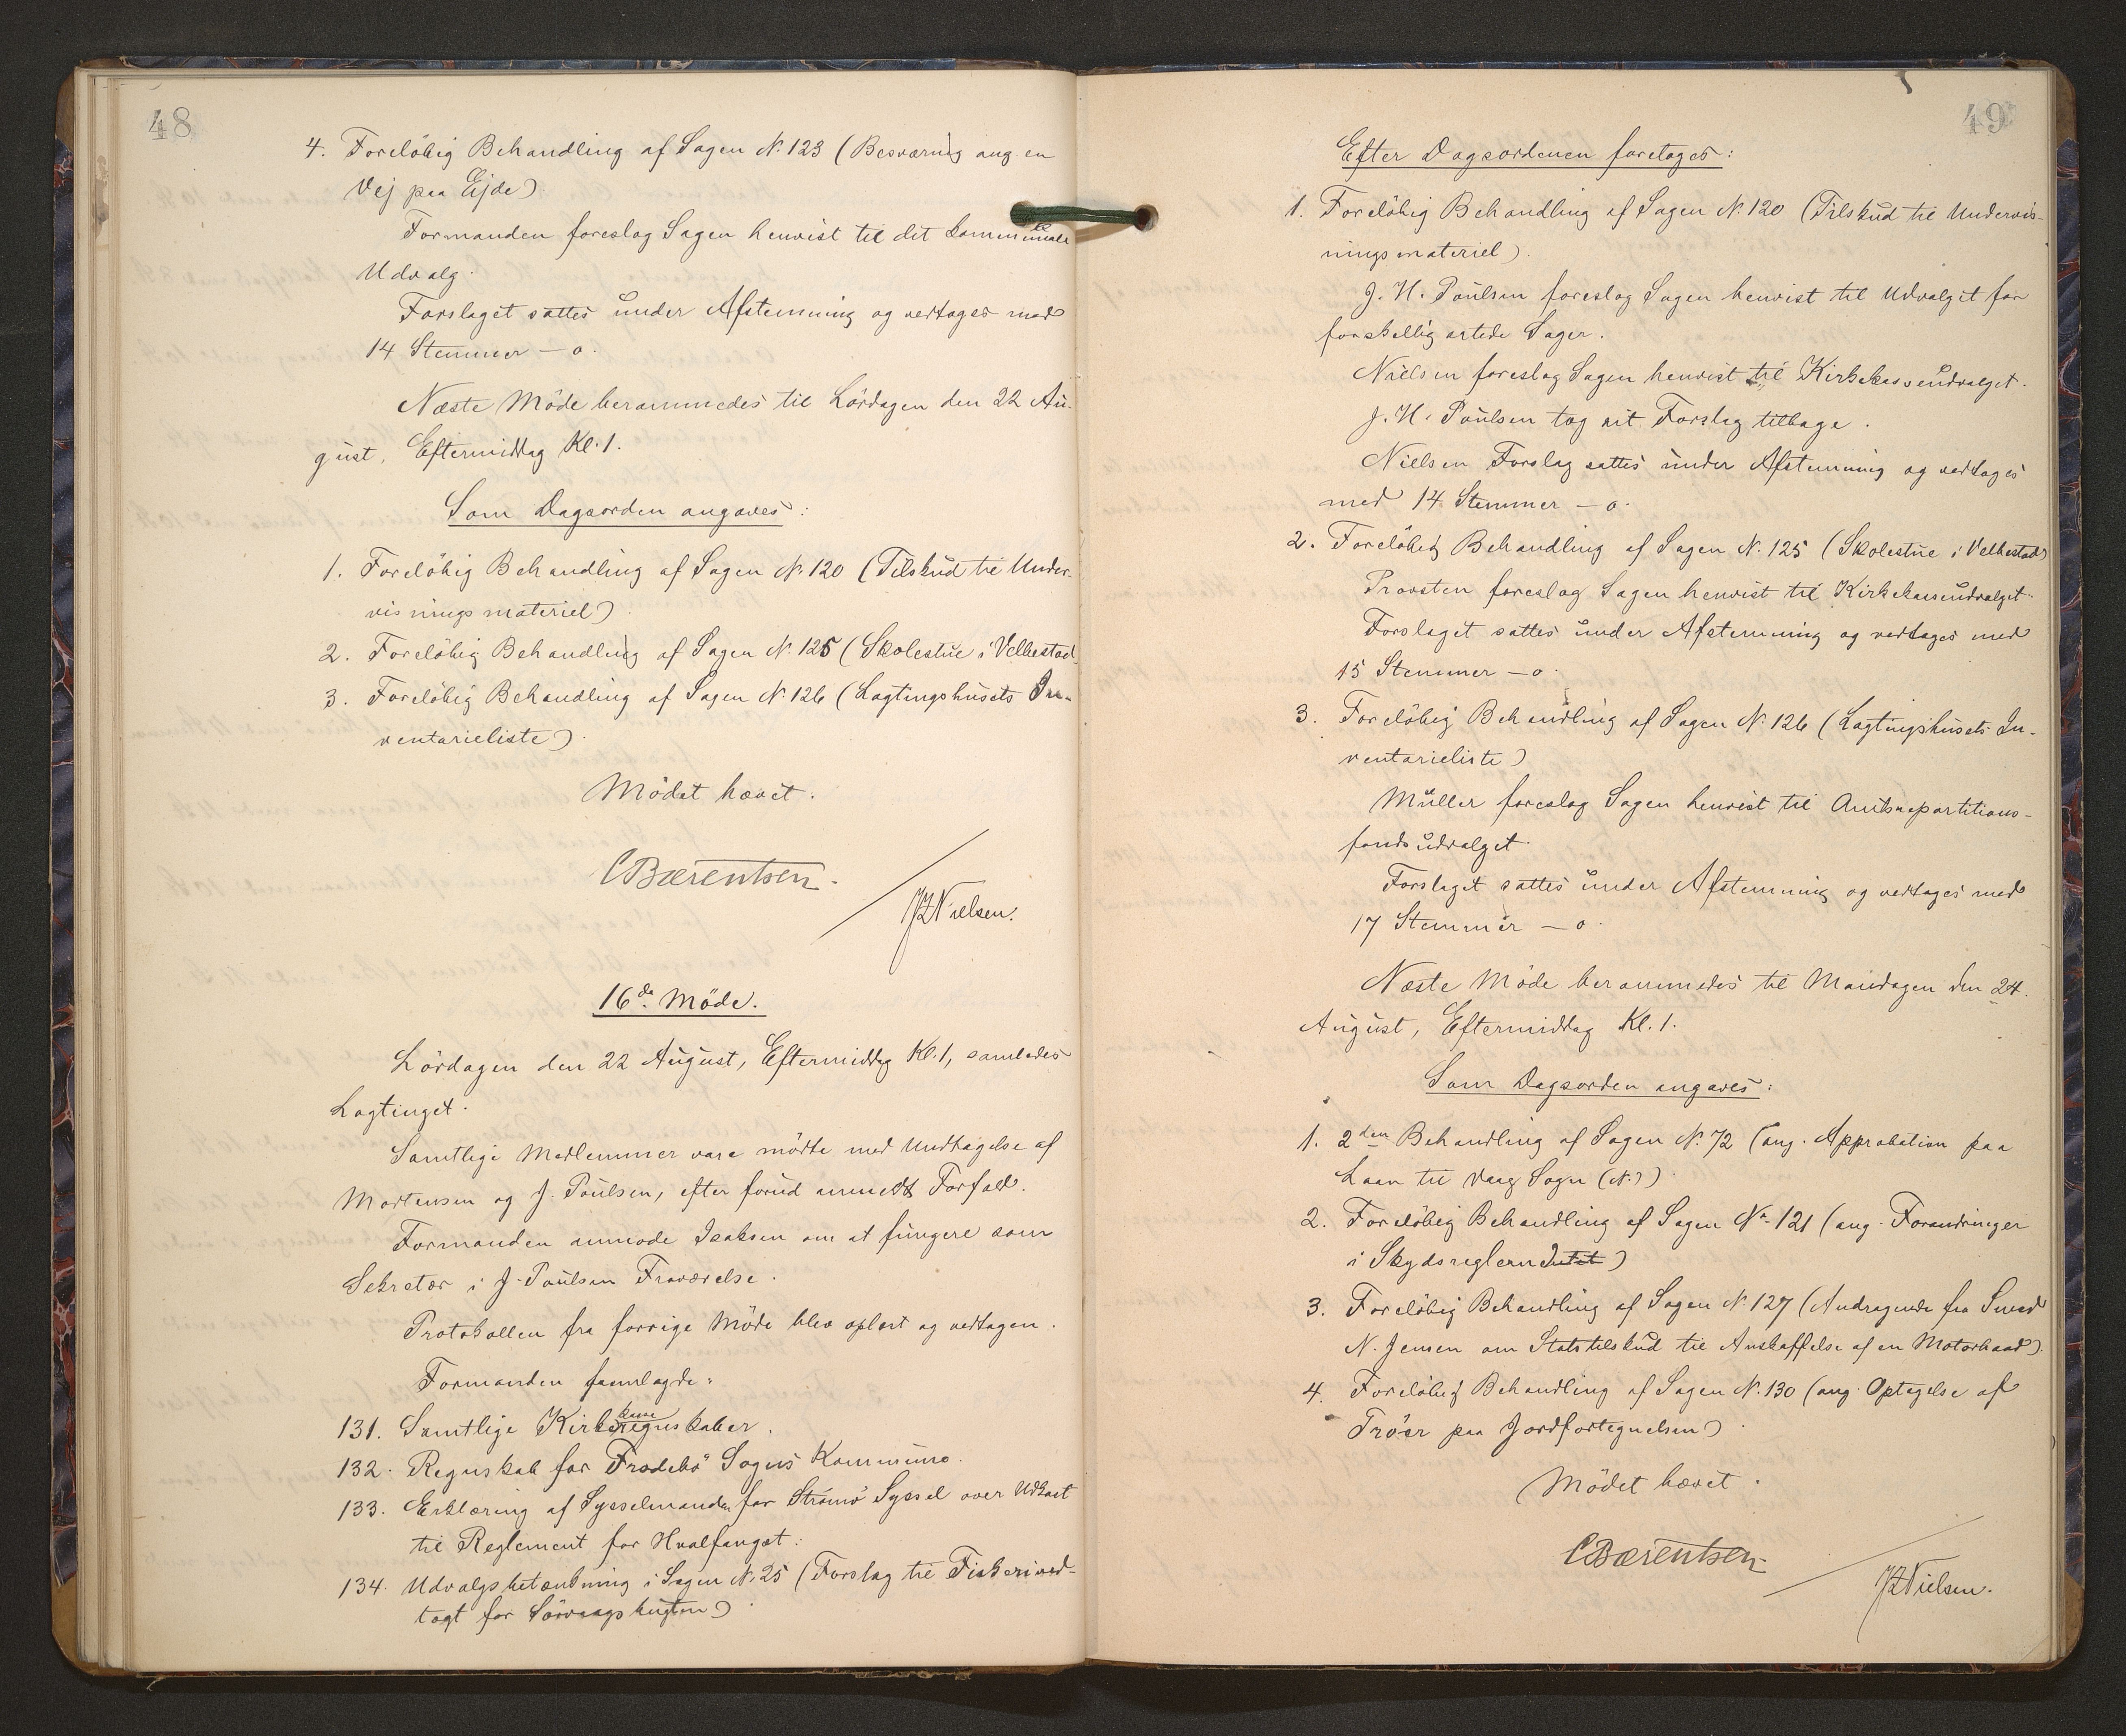 48
4. Foreløbig Behandling af Sagen N. 123 (Besværing ang. en
Vej paa Ejde)
Formanden foreslog Sagen henvist til det kommunale
Udvalg.
Forslaget sattes under Afstemning og vedtoges med
14 Stemmer – 0.
Næste Møde berammedes til Lørdagen den 22 Au-
gust, Eftermiddag Kl. 1.
Som Dagsorden angaves:
1. Foreløbig Behandling af Sagen N. 120 (Tilskud til Under-
visningsmateriel)
2. Foreløbig Behandling af Sagen N. 125 (Skolestue i Velbestad
3. Foreløbig Behandling af Sagen N. 126 (Lagtingshusets In-
ventarieliste)
Mødet hævet.
C Bærentsen.
Nielsen.
16de Møde.
Lørdagen den 22 August, Eftermiddag Kl. 1, samledes
Lagtinget.
Samtlige Medlemmer vare mødte med Undtagelse af
Mortensen og J. Poulsen, efter forud anmeldt Forfald.
Formanden anmode Isaksen om at fungere som
Sekretær i J. Poulsen Fraværelse.
Protokollen fra forrige Møde blev oplæst og vedtagen.
Formanden fremlagde:
131. Samtlige Kirkekasseregnskaber.
132. Regnskab for Frodebø Sogns Kommune.
133. Erklæring af Sysselmanden for Strømø Syssel over Udkast
til Reglement for Hvalfangst.
134. Udvalgsbetænkning i Sagen N. 25 (Forslag til Fiskerived-
tægt for Sørvaagsbugten)
49
Efter Dagsordenen foretoges:
1. Foreløbig Behandling af Sagen N. 120 (Tilskud til Undervis-
ningsmateriel).
J. H. Poulsen foreslog Sagen henvist til Udvalget for
forskellig artede Sager.
Nielsen foreslog Sagen henvist til Kirkekasseudvalget.
J. H. Poulsen tog sit Forslag tilbage.
Nielsen Forslag sattes under Afstemning og vedtoges
med 14 Stemmer – 0.
2. Foreløbig Behandling af Sagen N. 125 (Skolestue i Velbestad)
Provsten foreslog Sagen henvist til Kirkekasseudvalget
Forslaget sattes under Afstemning og vedtoges med
15 Stemmer – 0.
3. Foreløbig Behandling af Sagen N. 126 (Lagtingshusets In-
ventarieliste)
Müller foreslog Sagen henvist til Amtsrepartitions-
fondsudvalget
Forslaget sattes under Afstemning og vedtoges med
17 Stemmer – 0.
Næste Møde berammedes til Mandagen den 24.
August, Eftermiddag Kl. 1.
Som Dagsorden angaves:
1. 2den Behandling af Sagen N. 72 (ang. Approbation paa
Laan til Vaag Sogn (N.))
2. Foreløbig Behandling af Sagen No. 121 (ang. Forandringer
i Skydsreglementet)
3. Foreløbig Behandling af Sagen N. 127 (Andragende fra Smed
N. Jensen om Statstilskud til Anskaffelse af en Motorbaad).
4. Foreløbig Behandling af Sagen N. 130 (ang. Optagelse af
Trøer paa Jordfortegnelsen)
Mødet hævet.
C Bærentsen
Nielsen.